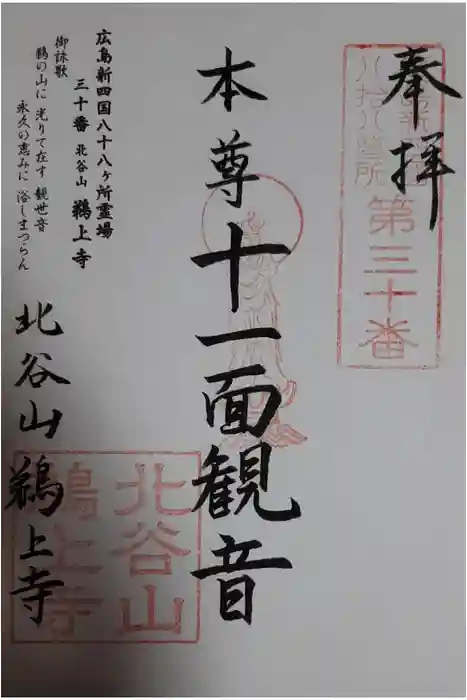 奉拝
広島新四国
八拾八箇所
第三十番
本尊十一面観音
広島新四国八十八ヶ所霊場
三十番 北谷山 鵜上寺
御詠歌
鵜の山に 光りて在す 観世音
永久の恵みに 浴しまつらん
北谷山鵜上寺
北谷山
鵜上寺